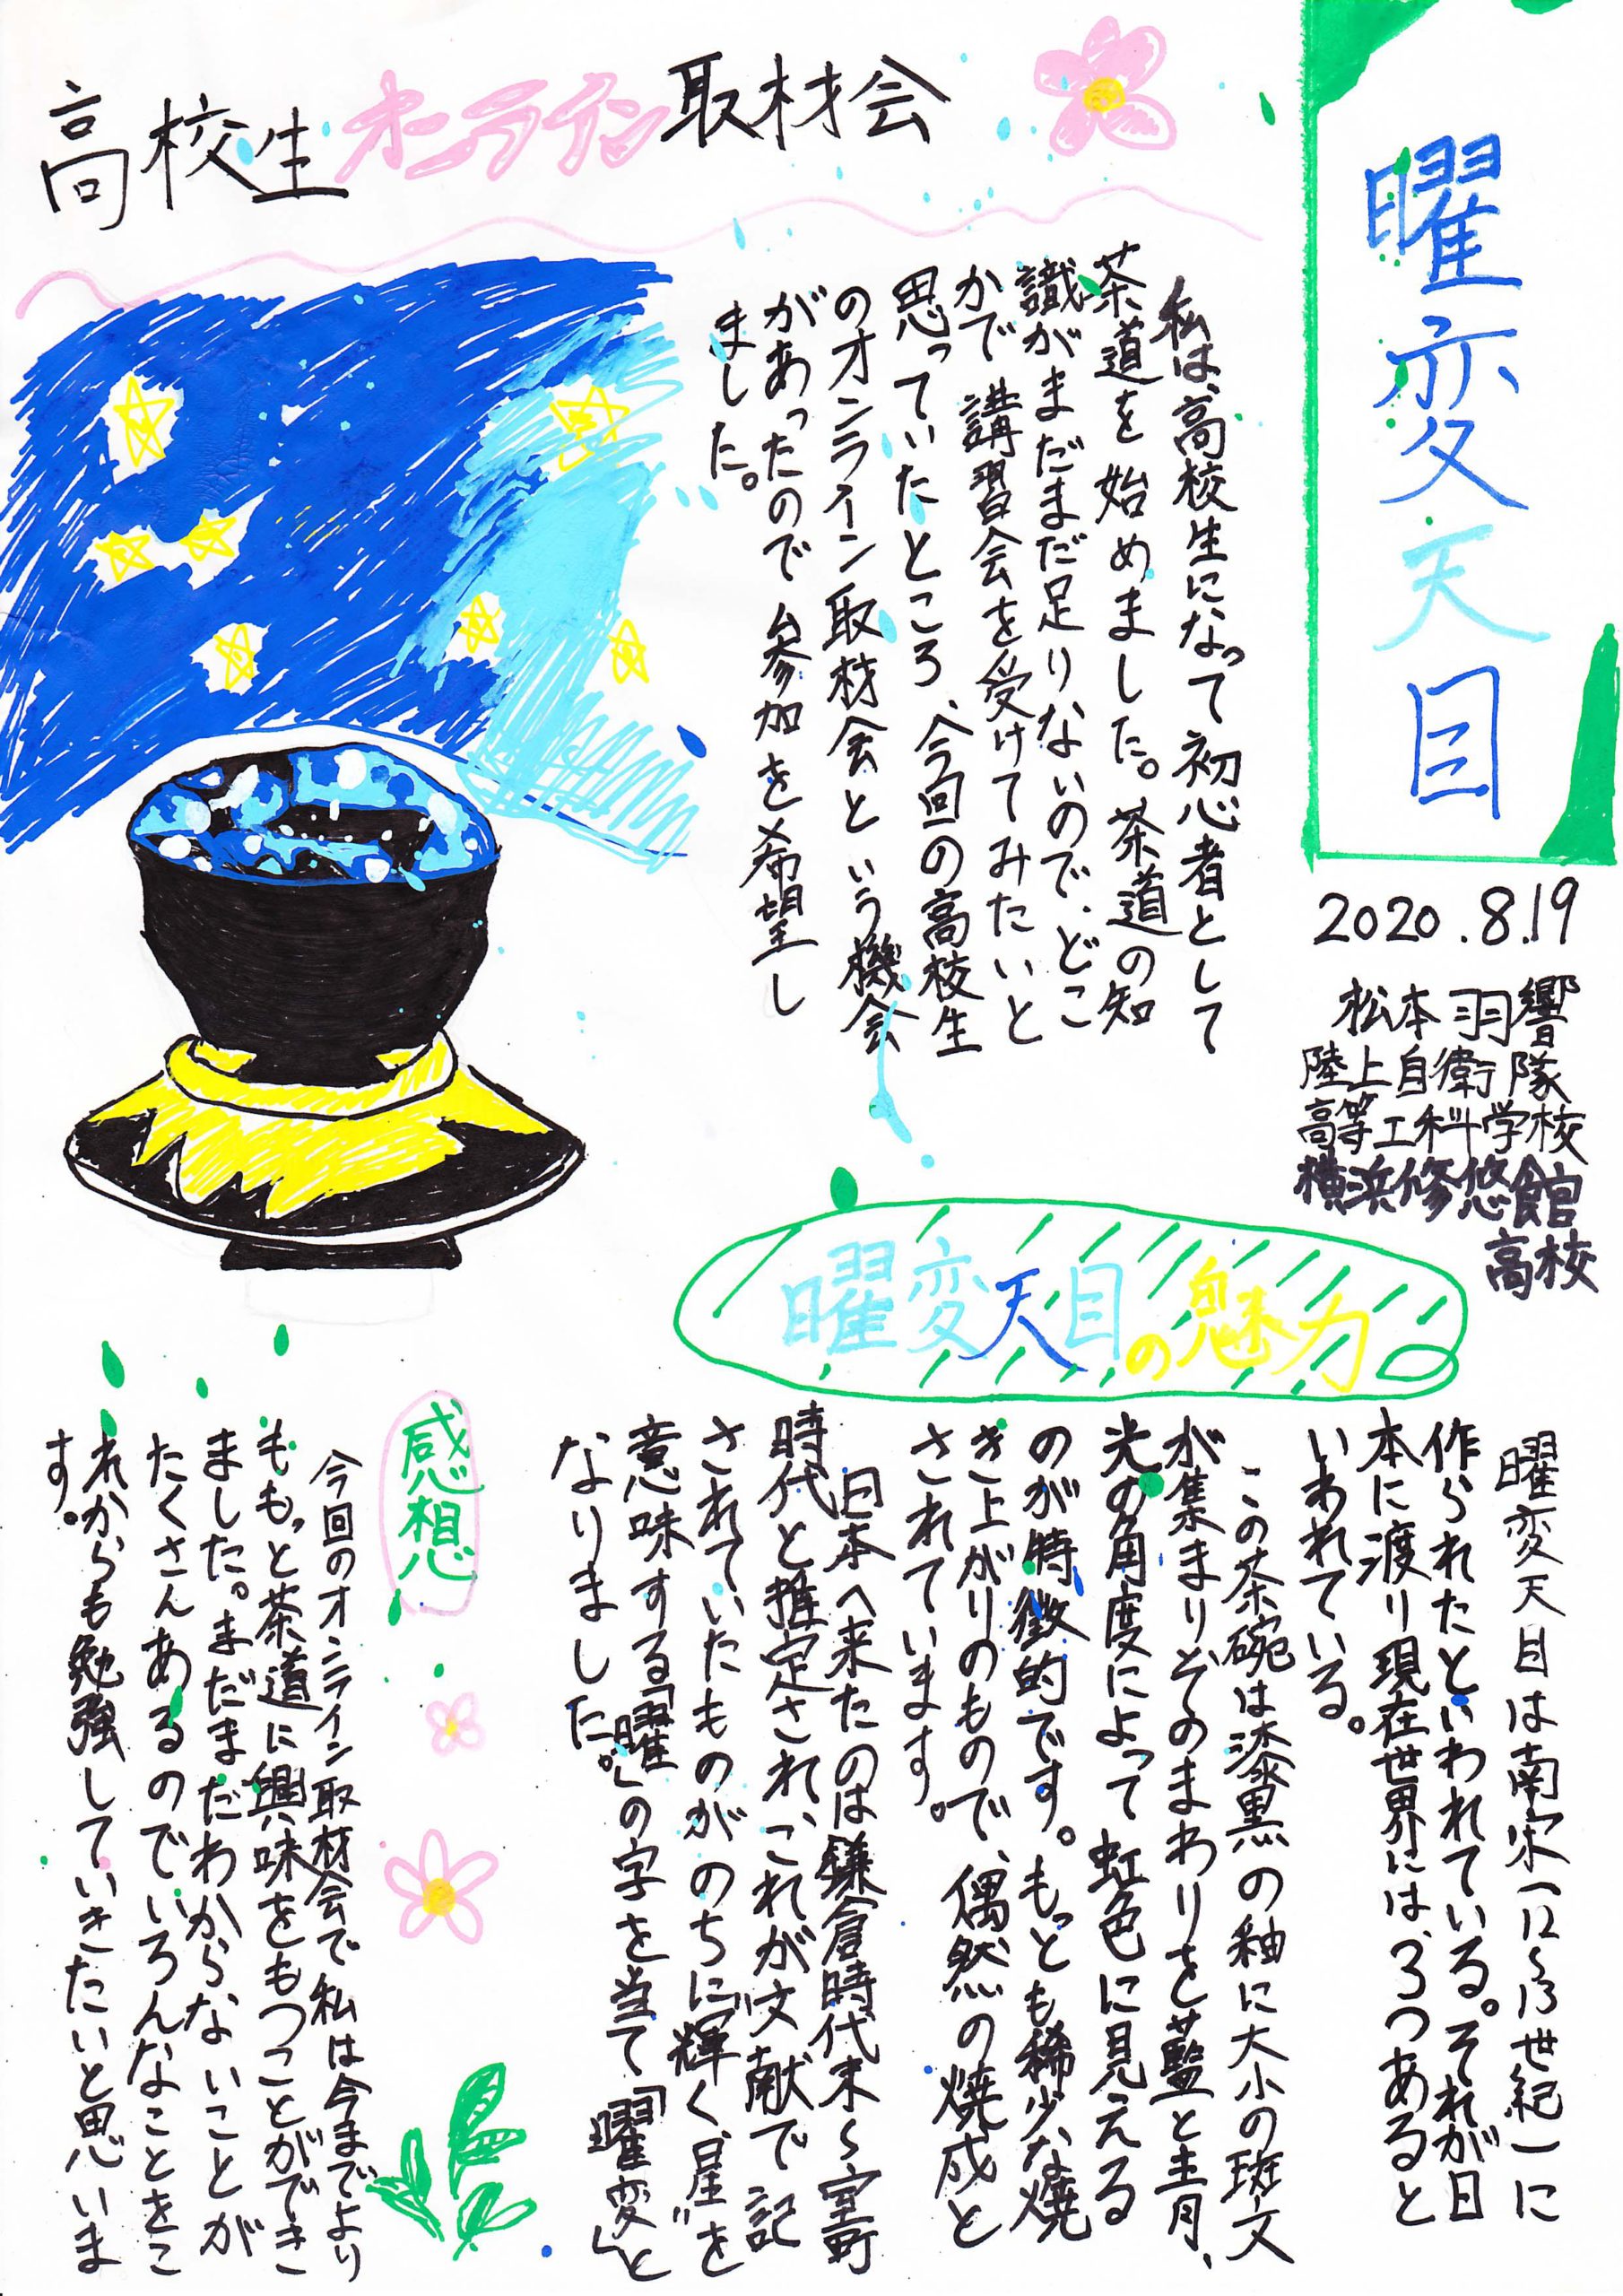 曜変天目
高校生オンライン取材会
2020.8.19
松本羽響
陸上自衛隊
高等工科学校
横浜修悠館
高校
私は、高校生になって初心者として
茶道を始めました。茶道の知
識がまだまだ足りないので、どこ
かで講習会を受けてみたいと
思っていたところ、今回の高校生
のオンライン取材会という機会
があったので参加を希望し
ました。
曜変天目の魅力
曜変天目は南宋(12~13世紀)に
作られたといわれている。それが日
本に渡り現在世界には、3つあると
いわれている。
この茶碗は漆黒の釉に大小の斑文
が集まりそのまわりを藍と青、
光の角度によって虹色に見える
のが特徴的です。もっとも稀少な焼
き上がりのもので、偶然の焼成と
されています。
日本へ来たのは鎌倉時代末~室町
時代と推定され、これが文献で記
されていたものがのちに"輝く、星"を
意味する「曜」の字を当て「曜変」と
なりました。
感想
今回のオンライン取材会で私は今までより
ももっと茶道に興味をもつことができ
ました。まだまだわからないことが
たくさんあるのでいろんなことをこ
れからも勉強していきたいと思いま
す。